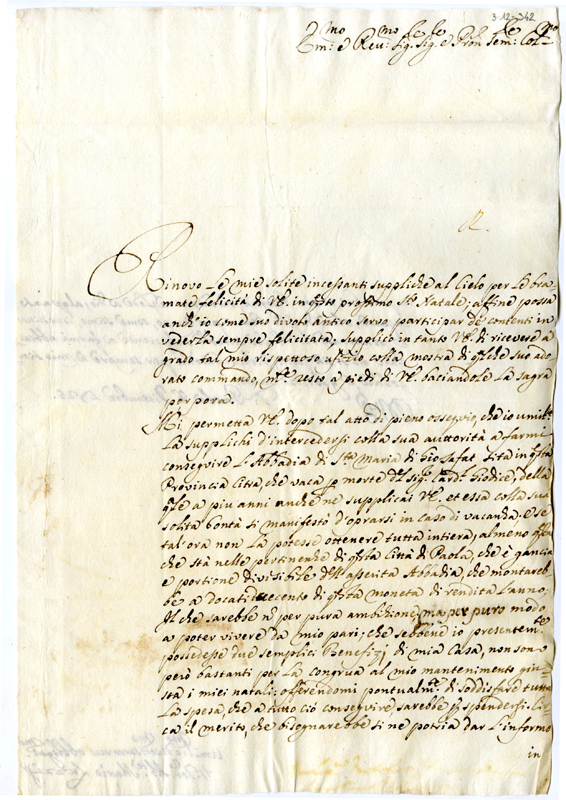 3-12-942
Em:mo e Rev:mo Sig. Sig. e Pron Sem: Col:mo
R.
Rinovo le mie solite incessanti suppliche al Cielo per le bra
mate felicità di VE. in qsto prossimo Sto Natale; affine possa
anch'io come suo divoto antico servo participar de contenti in
vederla sempre felicitata, supplico in tanto VE. di ricevere a
grado tal mio rispettoso ufizio colla mostra di qlche suo ado
rato commando, mtre resto a piedi di VE. baciandole la sagra
porpora.
Mi permetta VE. dopo tal atto di pieno ossequio, che io umilte
la supplichi d'intercedersi colla sua auttorità a farmi
conseguire l'Abbadia di Sta Maria di Sita in qsta
Provincia Citra, che vaca p morte del Sigr Cardl Giodice, della
qle a piu anni anche ne supplicai VE. et essa colla sua
solita bontà si manifestò d'oprarsi in caso di vacanza. e se
tal'ora non la potesse ottenere tutta intiera, almeno qlla
che stà nelle pertinenze di qsta Città di Paola, che è gancia
e portione divisibile dell'asserita Abbadia, che montareb
be a docati ducento di qsta moneta di rendita l'anno;
Il che sarebbe nò per pura ambizione, ma per puro modo
a poter vivere da mio pari; che sebbene io presentemte
possedesse due semplici Benefizj di mia Casa, non sono
però bastanti per la congrua al mio mantenimento giu
sta i miei natali: offerendomi pontualmte di soddisfare tutta
la spesa, che a tutto ciò conseguire sarebbe p spendersi. Cir
ca il merito, che bisognarebbe si ne potria dar l'informo
in